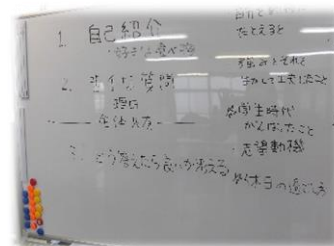 1. 自己紹介
・好きな食べ物
2. 質問
理由
全体共有
3. どう答えたら良いか考える
たとえると
強みとそれを
生かして工夫したこと
学生時代
がんばったこと
・志望動機
休日の過ごし方